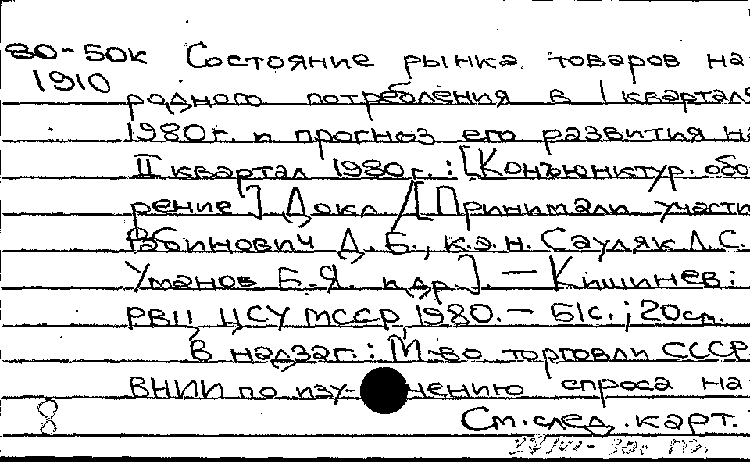 80-50к Состояние рынка товаров на-
1910 родного потребления в I квартале
1980г. и прогноз его развития на
II квартал 1980г.: [Конъюнктур. обо
рение] Докл. / [Принимали участи
Рабинович Д. Б., к.э.н. Сауляк Л. С.
Уманов Б. Я. и др.]. — Кишинев:
РВЦ ЦСУ МССР, 1980. — 61с.; 20см.
В надзаг.: М-во торговли СССР
ВНИИ по изучению спроса на
8 См. след. карт.